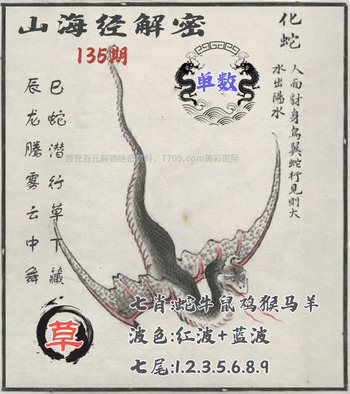 山海经解密
135期
单数
化蛇
人面豺身鸟翼蛇行见则大
水出陽水
巳蛇潜行草下藏
辰龙腾雾云中舞
7709.com美彩国际
草
七肖:蛇牛鼠鸡猴马羊
波色:红波+蓝波
七尾:1.2.3.5.6.8.9